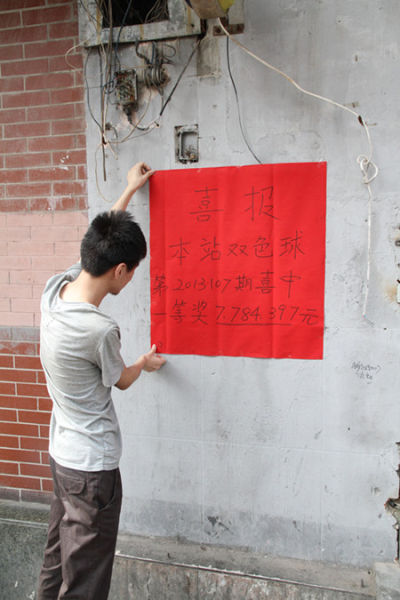 喜报
本站双色球
第2013107期喜中
一等奖7.784.397元